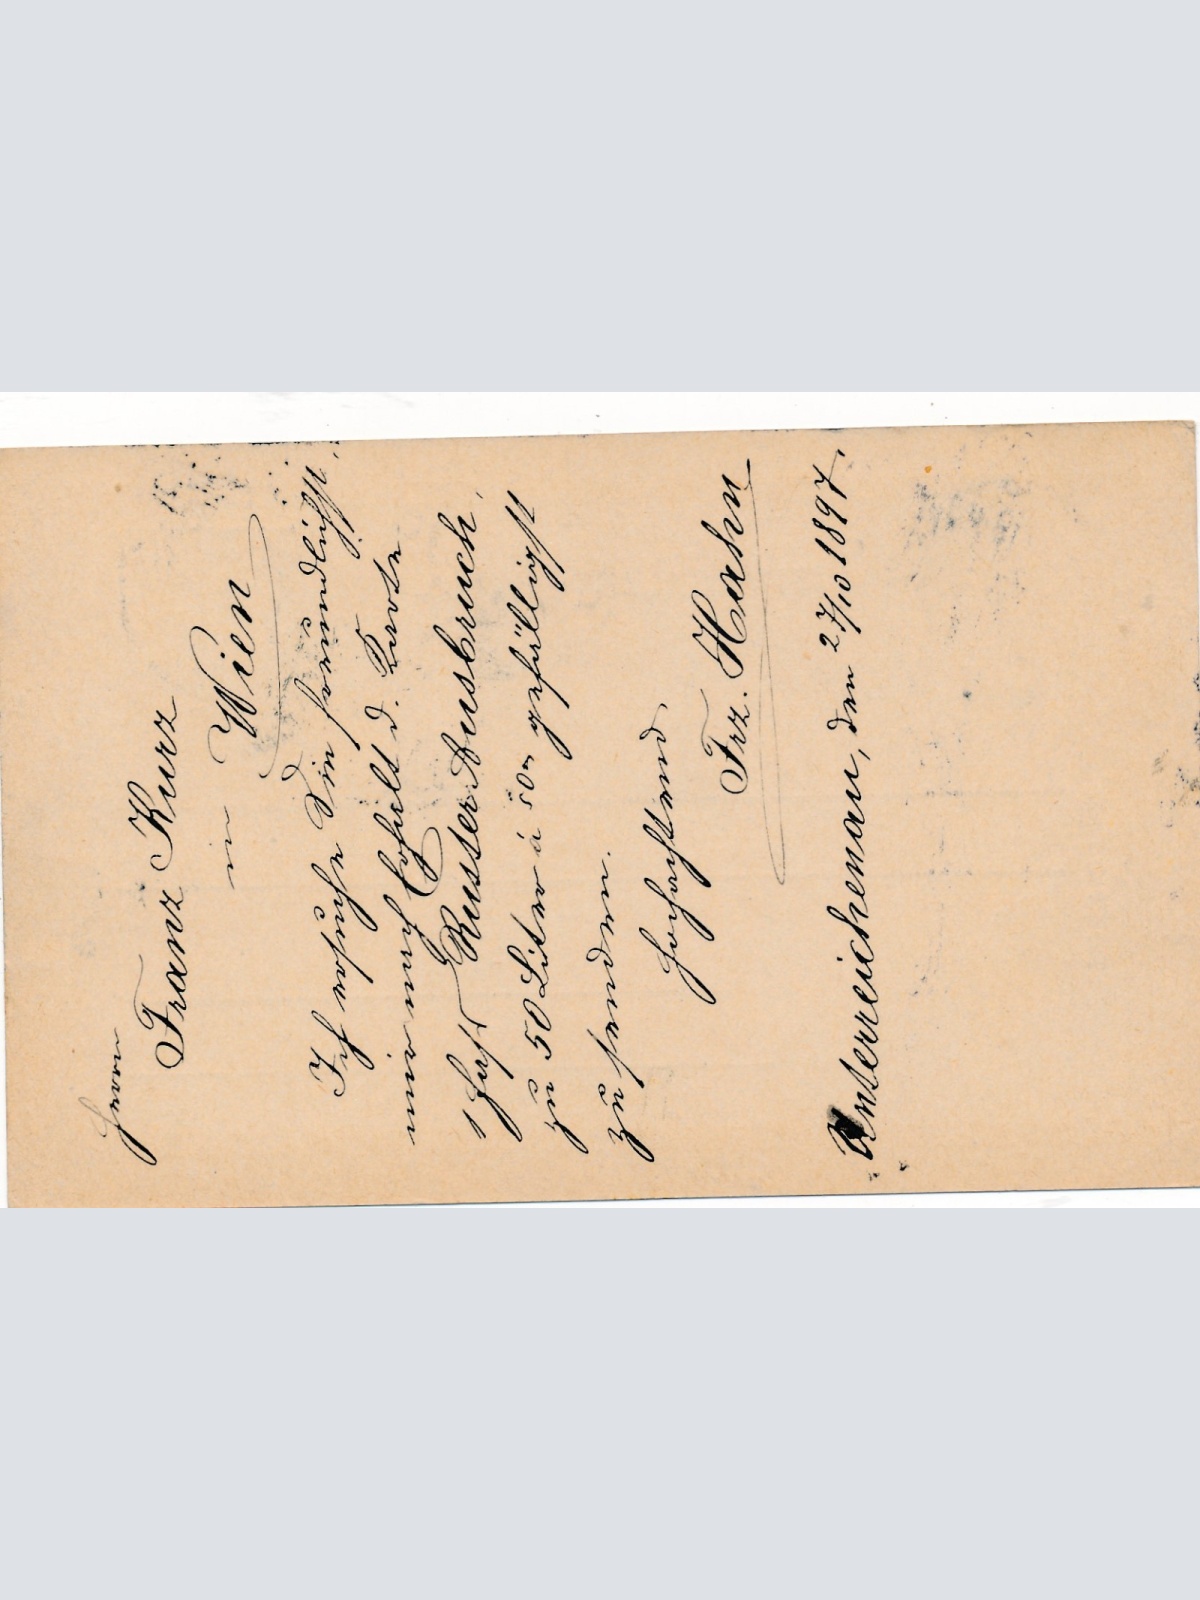 Herrn
Franz Kurz
in Wien
Ich ersuche Sie freundlichst,
mir nach Erhalt d. Karte
1 Faß Ruster Ausbruch,
zu 50 Liter à 50 gefälligst
zu senden.
Hochachtend
Frz. Hahn
Unterreichenau, den 27/10 1897.